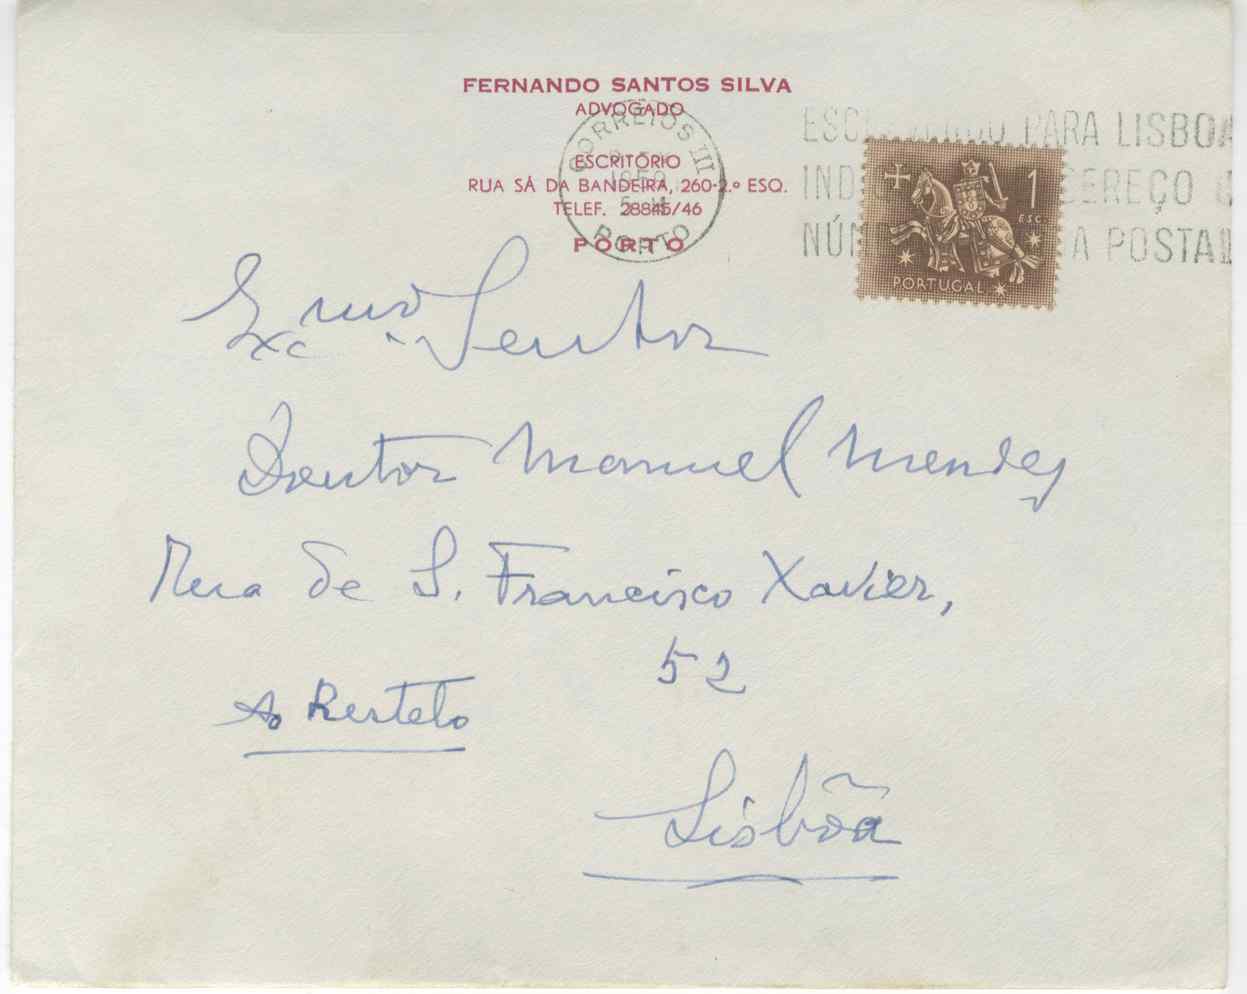 FERNANDO SANTOS SILVA
ADVOGADO
ESCRITÓRIO
RUA SÁ DA BANDEIRA, 260-2.º ESQ.
TELEF. 28845/46
PORTO
CORREIOS III
PORTO
PARA LISBOA
IND EREÇO
NÚM A POSTAL
1
ESC.
PORTUGAL
Exmo. Senhor
Doutor Manuel Mendes
Rua de S. Francisco Xavier,
52
Ao Restelo
Lisbôa